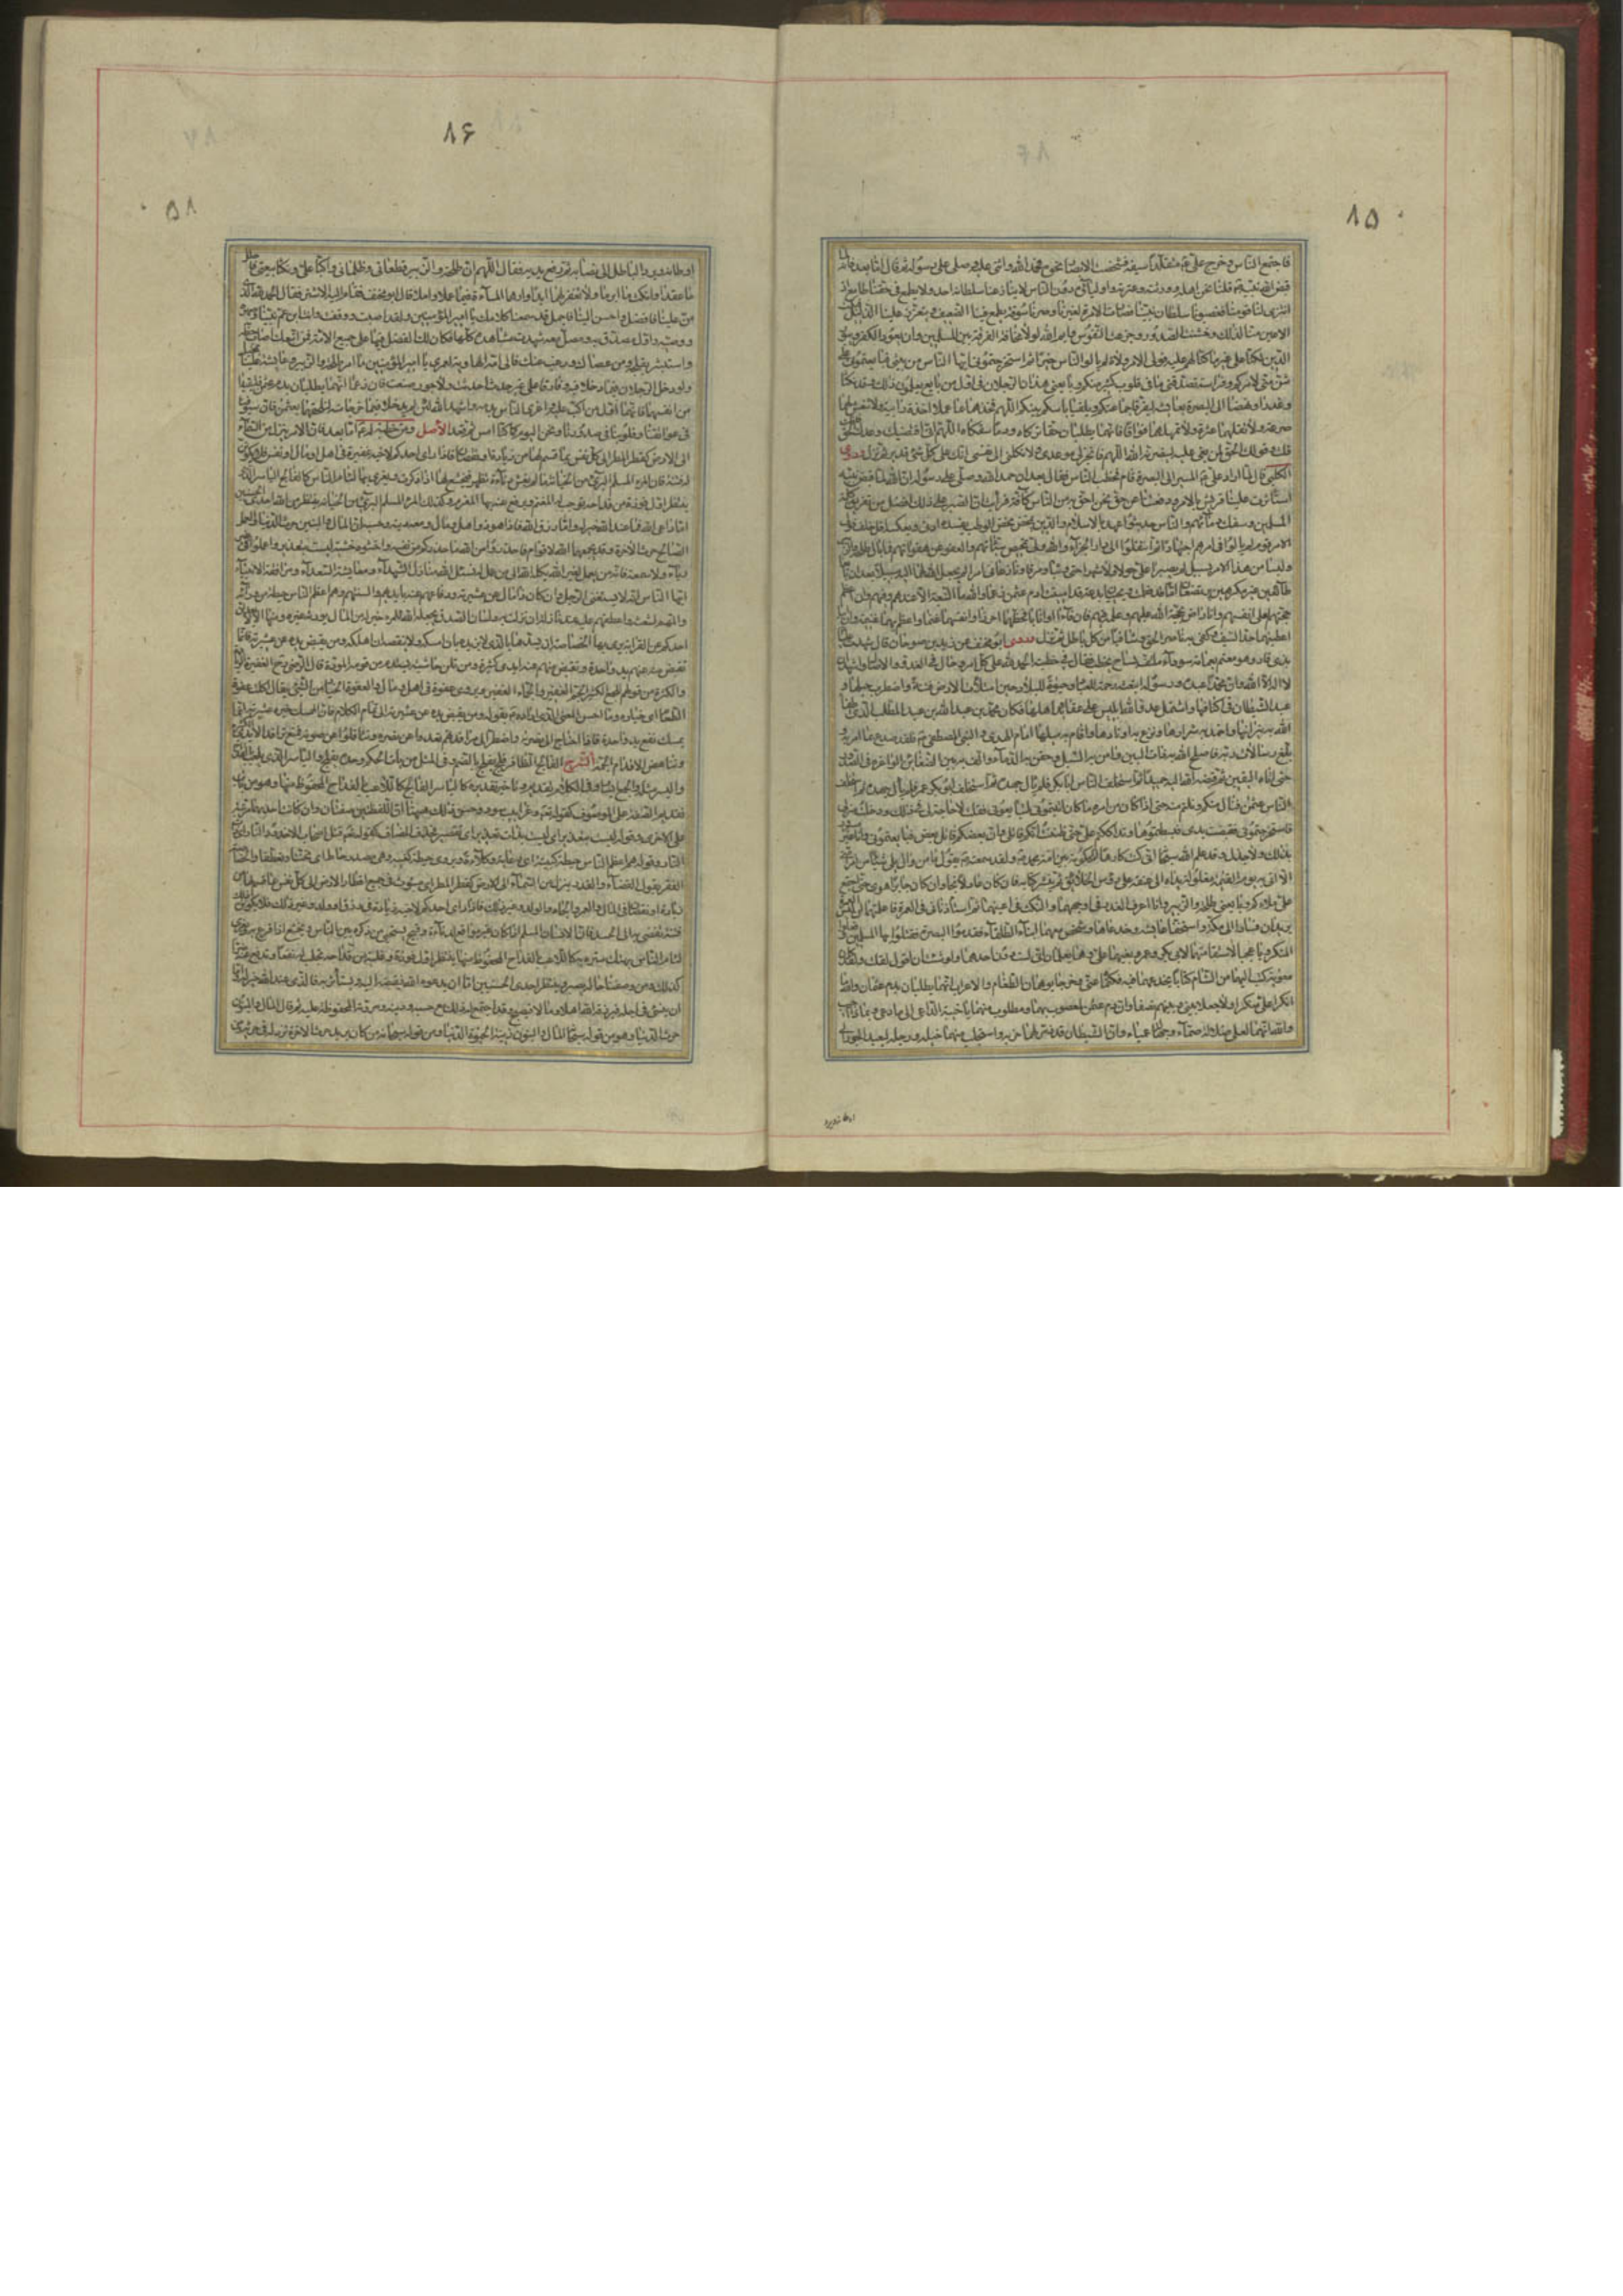 ١٥
فاجتمع الناس وخرج علي ع متقلدا سيفه فشخصت الابصار نحوه فحمد الله واثنى عليه وصلى على رسوله ثم قال اما بعد فانه لما
قبض الله نبيه قلنا نحن اهله وورثته وعترته واولياؤه دون الناس لا ينازعنا سلطانه احد ولا يطمع في حقنا طامع اذ
انبرى لنا قومنا فغصبونا سلطان نبينا فصارت الامرة لغيرنا وصرنا سوقة يطمع فينا الضعيف ويتعزز علينا الذليل فبكت
الاعين منا لذلك وخشنت الصدور وجزعت النفوس وايم الله لولا مخافة الفرقة بين المسلمين وان يعود الكفر ويبور
الدين لكنا على غير ما كنا لهم عليه فولى الامر ولاة لم يالوا الناس خيرا ثم استخرجتموني ايها الناس من بيتي فبايعتموني على
شين مني لامركم وفراسة تصدقني ما في قلوب كثير منكم وبايعني هذان الرجلان في اول من بايع يعلمون ذلك وقد نكثا
وغدرا ونهضا الى البصرة بعائشة ليفرقا جماعتكم ويلقيا باسكم بينكم اللهم فخذهما بما عملا اخذة رابية ولا تنعش لهما
صرعة ولا تقلهما عثرة ولا تمهلهما فواقا فانهما يطلبان حقا تركاه ودما سفكاه اللهم اني اقتضيك وعدك فانك
قلت وقولك الحق لمن بغي عليه لينصرنه الله اللهم فانجز لي موعدي ولا تكلني الى نفسي انك على كل شيء قدير ثم نزل وروى
الكلبي قال لما اراد علي ع المسير الى البصرة قام فخطب الناس فقال بعد ان حمد الله وصلى على رسوله ان الله لما قبض نبيه
استاثرت علينا قريش بالامر ودفعتنا عن حق نحن احق به من الناس كافة فرايت ان الصبر على ذلك افضل من تفريق كلمة
المسلمين وسفك دمائهم والناس حديثوا عهد بالاسلام والدين يمخض مخض الوطب يفسده ادنى وهن ويعكسه اقل خلف فولى
الامر قوم لم يالوا في امرهم اجتهادا ثم انتقلوا الى دار الجزاء والله ولي تمحيص سيئاتهم والعفو عن هفواتهم فما بال طلحة والزبير
وليسا من هذا الامر بسبيل لم يصبرا علي حولا ولا اشهرا حتى وثبا ومرقا ونازعاني امرا لم يجعل الله لهما اليه سبيلا بعد ان بايعا
طائعين غير مكرهين يرتضعان اما قد فطمت ويحييان بدعة قد اميتت ادم عثمن زعما والله ما التبعة الا عندهم وفيهم وان اعظم
حجتهم لعلى انفسهم وانا راض بحجة الله عليهم وعلمه فيهم فان فاءا وانابا فحظهما احرزا وانفسهما غنما واعظم بها غنيمة وان ابيا
اعطيتهما حد السيف وكفى به ناصرا لحق وشافيا من كل باطل ثم نزل وروى ابو مخنف عن زيد بن صوحان قال شهدت عليا
بذي قار وهو معتم بعمامة سوداء ملتف بساج يخطب فقال في خطبته الحمد لله على كل امر وحال في الغدو والاصال واشهد ان
لا اله الا الله وان محمدا عبده ورسوله ابتعثه رحمة للعباد وحيوة للبلاد حين امتلات الارض فتنة واضطرب حبلها و
عبد الشيطان في اكنافها واشتمل عدو الله ابليس على عقايد اهلها فكان محمد بن عبد الله بن عبد المطلب الذي اطفأ
الله به نيرانها واخمد به شرارها ونزع به اوتادها واقام به ميلها امام الهدى والنبي المصطفى ص فلقد صدع بما امر به و
بلغ رسالات ربه فاصلح الله به ذات البين وامن به السبل وحقن به الدماء والف به بين ذوي الضغائن الواغرة في الصدور
حتى اتاه اليقين ثم قبضه الله اليه حميدا ثم استخلف الناس ابا بكر فلم يال جهده ثم استخلف ابو بكر عمر فلم يال جهده ثم استخلف
الناس عثمن فنال منكم ونلتم منه حتى اذا كان من امره ما كان اتيتموني لتبايعوني فقلت لا حاجة لي في ذلك ودخلت منزلي
فاستخرجتموني فقبضت يدي فبسطتموها وتداككتم علي حتى ظننت انكم قاتلي وان بعضكم قاتل بعض فبايعتموني وانا غير مسرور
بذلك ولا جذل وقد علم الله سبحانه اني كنت كارها للحكومة بين امة محمد ص ولقد سمعته يقول ما من وال يلي شيئا من امر امتي
الا اتي به يوم القيمة مغلولة يداه الى عنقه على رؤس الخلائق ثم ينشر كتابه فان كان عادلا نجا وان كان جائرا هوى حتى اجتمع
علي ملاؤكم وبايعني طلحة والزبير وانا اعرف الغدر في اوجههما والنكث في اعينهما ثم استاذناني في العمرة فاعلمتهما ان ليس العمرة
يريدان فسارا الى مكة واستخفا عائشة وخدعاها وشخص معهما ابناء الطلقاء فقدموا البصرة فقتلوا بها المسلمين وفعلوا
المنكر ويا عجبا لاستقامتهما لابي بكر وعمر وبغيهما علي وهما يعلمان اني لست دون احدهما ولو شئت ان اقول لقلت ولقد كان
معوية كتب اليهما من الشام كتابا يخدعهما فيه فكتماه عني وخرجا يوهمان الطغام والاعراب انهما يطلبان بدم عثمان والله ما
انكرا علي منكرا ولا جعلا بيني وبينهم نصفا وان دم عثمن لمعصوب بهما ومطلوب منهما يا خيبة الداعي الى ما دعى وبماذا اجيب
والله انهما لعلى ضلالة صماء وجهالة عمياء وان الشيطان قد ذمر لهما حزبه واستجلب منهما خيله ورجله ليعيد الجور الى
اوطانه ويرد
١۶
اوطانه ويرد الباطل الى نصابه ثم رفع يديه فقال اللهم ان طلحة والزبير قطعاني وظلماني والبا علي ونكثا بيعتي فاحلل
ما عقدا وانكث ما ابرما ولا تغفر لهما ابدا وارهما المساءة فيما عملا واملا قال ابو مخنف فقام اليه الاشتر فقال الحمد لله الذي
من علينا فافضل واحسن الينا فاجمل قد سمعنا كلامك يا امير المؤمنين ولقد اصبت ووفقت وانت ابن عم نبينا وصهره
ووصيه واول مصدق به ومصل معه شهدت مشاهده كلها فكان لك الفضل فيها على جميع الامة فمن اتبعك اصاب حظه
واستبشر بفلجه ومن عصاك ورغب عنك فالى امه الهاوية لعمري يا امير المؤمنين ما امر طلحة والزبير وعائشة علينا بمخيل
ولقد دخل الرجلان فيما دخلا فيه وفارقا على غير حدث احدثت ولا جور صنعت فان زعما انهما يطلبان بدم عثمن فليقيدا
من انفسهما فانهما اول من الب عليه واغرى الناس بدمه واشهد الله لئن لم يدخلا فيما خرجا منه لنلحقنهما بعثمن فان سيوفنا
في عواتقنا وقلوبنا في صدورنا ونحن اليوم كما كنا امس ثم قعد الاصل ومن خطبة له ع اما بعد فان الامر ينزل من السماء
الى الارض كقطر المطر الى كل نفس بما قسم لها من زيادة او نقصان فاذا راى احدكم لاخيه غفيرة في اهل او مال او نفس فلا تكونن
له فتنة فان المرء المسلم البريء من الخيانة ما لم يغش دناءة تظهر فيخشع لها اذا ذكرت ويغرى بها لئام الناس كالفالج الياسر الذي
ينتظر اول فوزة من قداحه توجب له المغنم ويرفع عنه بها المغرم وكذلك المرء المسلم البريء من الخيانة ينتظر من الله احدى الحسنيين
اما داعي الله فما عند الله خير له واما رزق الله فاذا هو ذو اهل ومال ومعه دينه وحسبه ان المال والبنين حرث الدنيا والعمل
الصالح حرث الاخرة وقد يجمعهما الله لاقوام فاحذروا من الله ما حذركم من نفسه واخشوه خشية ليست بتعذير واعملوا في غير
رياء ولا سمعة فانه من يعمل لغير الله يكله الله الى من عمل له نسئل الله منازل الشهداء ومعايشة السعداء ومرافقة الانبياء
ايها الناس انه لا يستغني الرجل وان كان ذا مال عن عشيرته ودفاعهم عنه بايديهم والسنتهم وهم اعظم الناس حيطة من ورائه
والمهم لشعثه واعطفهم عليه عند نازلة ان نزلت به ولسان الصدق يجعله الله للمرء خير له من المال يورثه غيره ومنها الا لا يعدلن
احدكم عن القرابة يرى بها الخصاصة ان يسدها بالذي لا يزيده ان امسكه ولا ينقصه ان اهلكه ومن يقبض يده عن عشيرته فانما
تقبض منه عنهم يد واحدة وتقبض منهم عنه ايد كثيرة ومن تلن حاشيته يستدم من قومه المودة قال الرضي
والكثرة من قولهم للجمع الكثير الجم الغفير والجماء الغفير ويروى عفوة في اهل او مال والعفوة الخيار من الشيء يقال اكلت عفوة
الطعام اي خياره وما احسن المعنى الذي اراده ع بقوله ومن يقبض يده عن عشيرته الى تمام الكلام فان الممسك خيره عن عشيرته انما
يمسك نفع يد واحدة فاذا احتاج الى نصرتهم واضطر الى مرافدتهم قعدوا عن نصره وتثاقلوا عن صوته فمنع ترافد الايدي الكثيرة
وتناهض الاقدام الجمة الشرح الفالج الظافر فلج يفلج بالضم وفي المثل من يات الحكم وحده يفلج والياسر الذي يلعب بالقداح
واليسر مثله والجمع ايسار وفي الكلام تقديم وتاخير تقديره كالياسر الفالج كاللاعب بالقداح المحظوظ منها وهو من باب
تقديم الصفة على الموصوف كقوله تعالى وغرابيب سود وحسن ذلك ههنا ان اللفظتين صفتان وان كانت احديهما مرتبة
على الاخرى وقوله ليست بتعذير اي ليست بذات تعذير اي تقصير فحذف المضاف كقوله تعالى قتل اصحاب الاخدود النار اي ذي
النار وقوله هم اعظم الناس حيطة كبيعة اي رعاية وكلاءة ويروى حيطة كغيبة وهي مصدر حاط اي تحننا وتعطفا والخصاصة
الفقر يقول القضاء والقدر ينزلان من السماء الى الارض كقطر المطر اي مبثوث في جميع اقطار الارض الى كل نفس بما قسم لها من
زيادة او نقصان في المال والعمر والجاه والولد وغير ذلك فاذا راى احدكم لاخيه زيادة في رزق او ولد وغير ذلك فلا يكونن ذلك له
فتنة تفضي به الى الحسد فان الانسان المسلم اذا كان غير مواقع لدناءة وقبيح يستحيي من ذكره بين الناس ويخشع اذا قرع به ويغرى
لئام الناس بهتك ستره به كاللاعب بالقداح المحظوظ منها ينتظر اول فوزة وغلبة من قداحه تجلب له نفعا وتدفع عنه ضرا
كذلك من وصفنا حاله يصبر وينتظر احدى الحسنيين اما ان يدعوه الله فيقبضه اليه ويستاثر به فالذي عند الله خير له واما
ان ينسئ في اجله فيرزقه الله اهلا ومالا فيصبح وقد اجتمع له ذلك مع حسبه ودينه ومروته المحفوظة عليه ثم قال المال والبنون
حرث الدنيا وهو من قوله سبحانه المال والبنون زينة الحيوة الدنيا ومن قوله سبحانه من كان يريد حرث الاخرة نزد له في حرثه